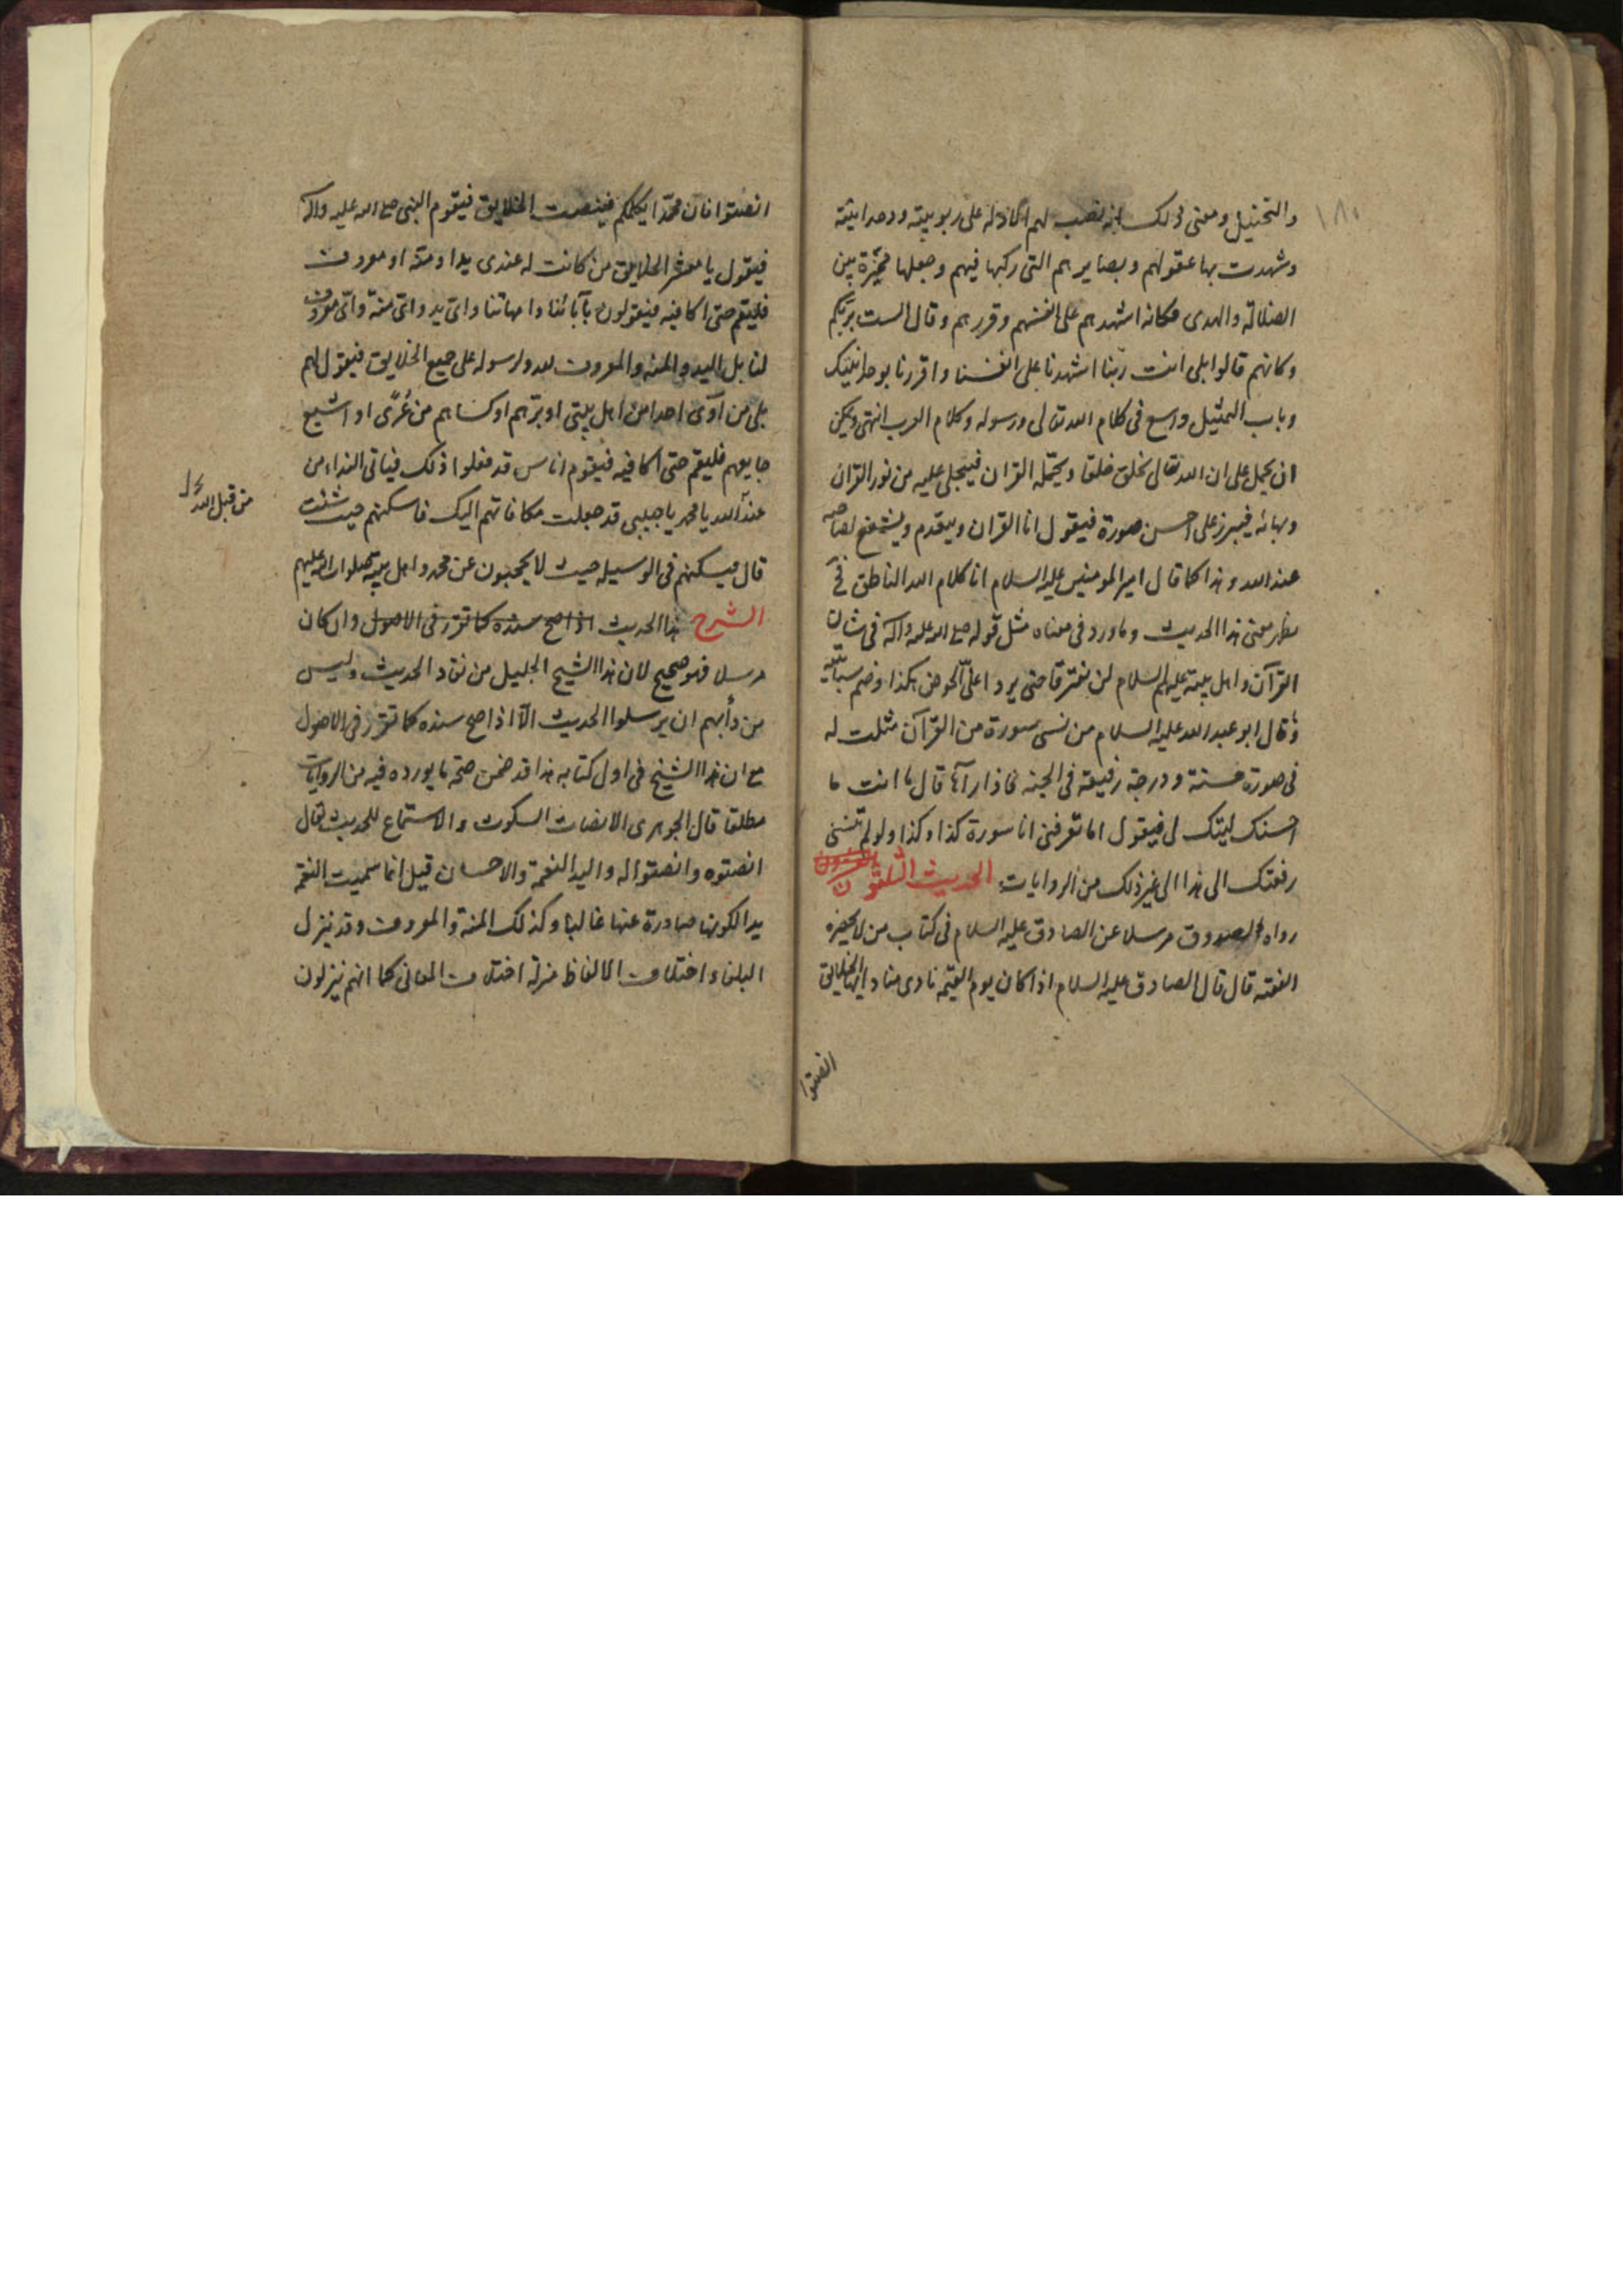 ١٨٠
والتخييل ومعنى ذلك انه نصب لهم الادلة على ربوبيته ووحدانيته
وشهدت بها عقولهم وبصايرهم التى ركبها فيهم وجعلها مميزة بين
الضلالة والهدى فكانه اشهدهم على انفسهم وقررهم وقال الست بربكم
وكانهم قالوا بلى انت ربنا اشهدنا على انفسنا واقررنا بوحدانيتك
وباب التمثيل واسع فى كلام الله تعالى ورسوله وكلام العرب انتهى ويمكن
ان يحمل على ان الله تعالى يخلق خلقا ويحمّله القران فيتجلى عليه من نور القران
وبهائه فيبرز على احسن صورة فيقول انا القران ويتقدم ويشفع لصاحبه
عند الله وهذا كما قال امير المومنين عليه السلام انا كلام الله الناطق
يظهر معنى هذا الحديث وما ورد فى معناه مثل قوله صلى الله عليه واله فى شان
القرآن واهل بيته عليهم السلام لن يفترقا حتى يردا علىّ الحوض هكذا وضم سبابتيه
وقال ابو عبد الله عليه السلام من نسى سورة من القرآن مثلت له
فى صورة حسنة ودرجة رفيعة فى الجنه فاذا رآها قال ما انت ما
احسنك ليتك لى فيقول اما تعرفنى انا سورة كذا وكذا ولو لم تنسنى
رفعتك الى هذا الى غير ذلك من الروايات الحديث الثلثون
رواه الصدوق مرسلا عن الصادق عليه السلام فى كتاب من لا يحضره
الفقيه قال قال الصادق عليه السلام اذا كان يوم القيمه نادى مناد ايها الخلايق
انصتوا
انصتوا فان محمّدا يكلمكم فينصت الخلايق فيقوم النبى صلى الله عليه واله
فيقول يا معشر الخلايق من كانت له عندى يد او منّة او معروف
فليقم حتى اكافيه فيقولون بآبائنا وامهاتنا واىّ يد واىّ منّة واىّ معروف
لنا بل اليد والمنه والمعروف لله ولرسوله على جميع الخلايق فيقول لهم
بلى من آوى احدا من اهل بيتى او برّهم او كساهم من عُرًى او اشبع
جايعهم فليقم حتى اكافيه فيقوم اناس قد فعلوا ذلك فياتى النداء من
عند الله يا محمد يا حبيبى قد جعلت مكافاتهم اليك فاسكنهم حيث شئت
من قبل الله
قال فيسكنهم فى الوسيله حيث لا يحجبون عن محمد واهل بيته صلوات الله عليهم
الشرح هذا الحديث اذا صح سنده كما تقرّر فى الاصول وان كان
مرسلا فهو صحيح لان هذا الشيخ الجليل من نقاد الحديث وليس
من دأبهم ان يرسلوا الحديث الّا اذا صح سنده كما تقرّر فى الاصول
مع ان هذا الشيخ فى اول كتابه هذا قد ضمن صحّة ما يورده فيه من الروايات
مطلقا قال الجوهرى الانصات السكوت والاستماع للحديث يقال
انصتوه وانصتوا له واليد النعمة والاحسان قيل انما سميت النعمة
يدا لكونها صادرة عنها غالبا وكذلك المنة والمعروف وقد ينزل
البلغاء اختلاف الالفاظ منزلة اختلاف المعانى كما انهم ينزلون